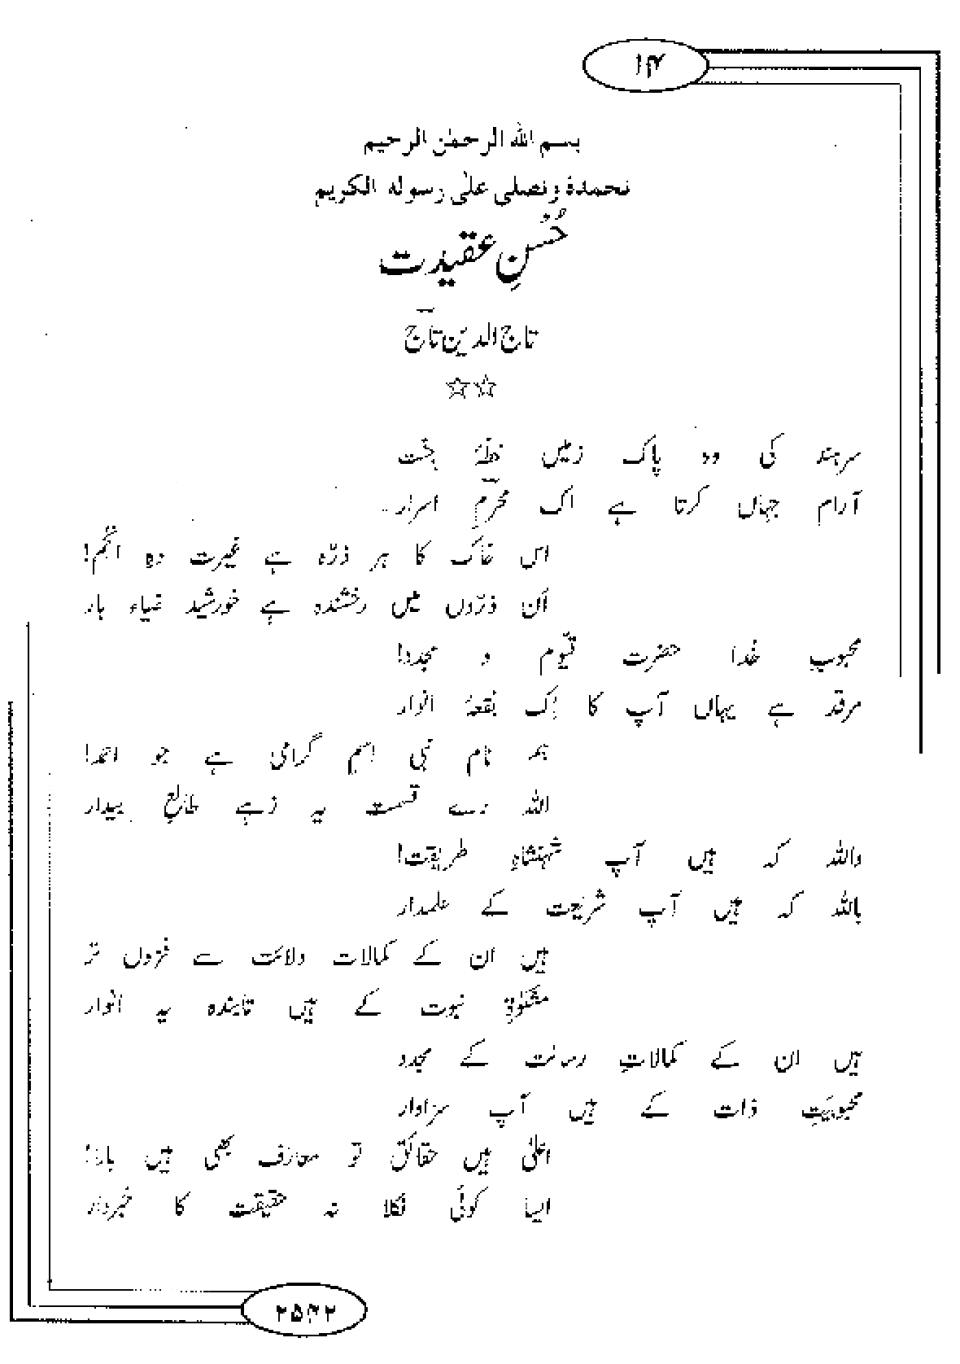 ۱۴
بسم الله الرحمٰن الرحیم
نحمدهٗ ونصلی علیٰ رسوله الکریم
حُسنِ عقیدت
تاج الدین تاج
☆☆
سرہند کی وہ پاک زمیں خطۂ جنّت
آرام جہاں کرتا ہے اک محرمِ اسرار
اس خاک کا ہر ذرّہ ہے غیرت دہِ انجم!
اُن ذرّوں میں رخشندہ ہے خورشید ضیاء بار
محبوبِ خُدا حضرت قیّوم و مجدد!
مرقد ہے یہاں آپ کا اِک بُقعۂ انوار
ہم نام نبی اسم گرامی ہے جو احمد!
اللہ رے قسمت یہ زہے طالعِ بیدار
واللہ کہ ہیں آپ شہنشاہِ طریقت!
باللہ کہ ہیں آپ شریعت کے علمدار
ہیں ان کے کمالات ولائت سے فزوں تر
مشکوٰۃِ نبوت کے ہیں تابندہ یہ انوار
ہیں ان کے کمالاتِ رسالت کے مجدد
محبوبیتِ ذات کے ہیں آپ سزاوار
اعلیٰ ہیں حقائق تو معارف بھی ہیں بالا!
ایسا کوئی نکلا نہ حقیقت کا خبردار
۲۵۴۲